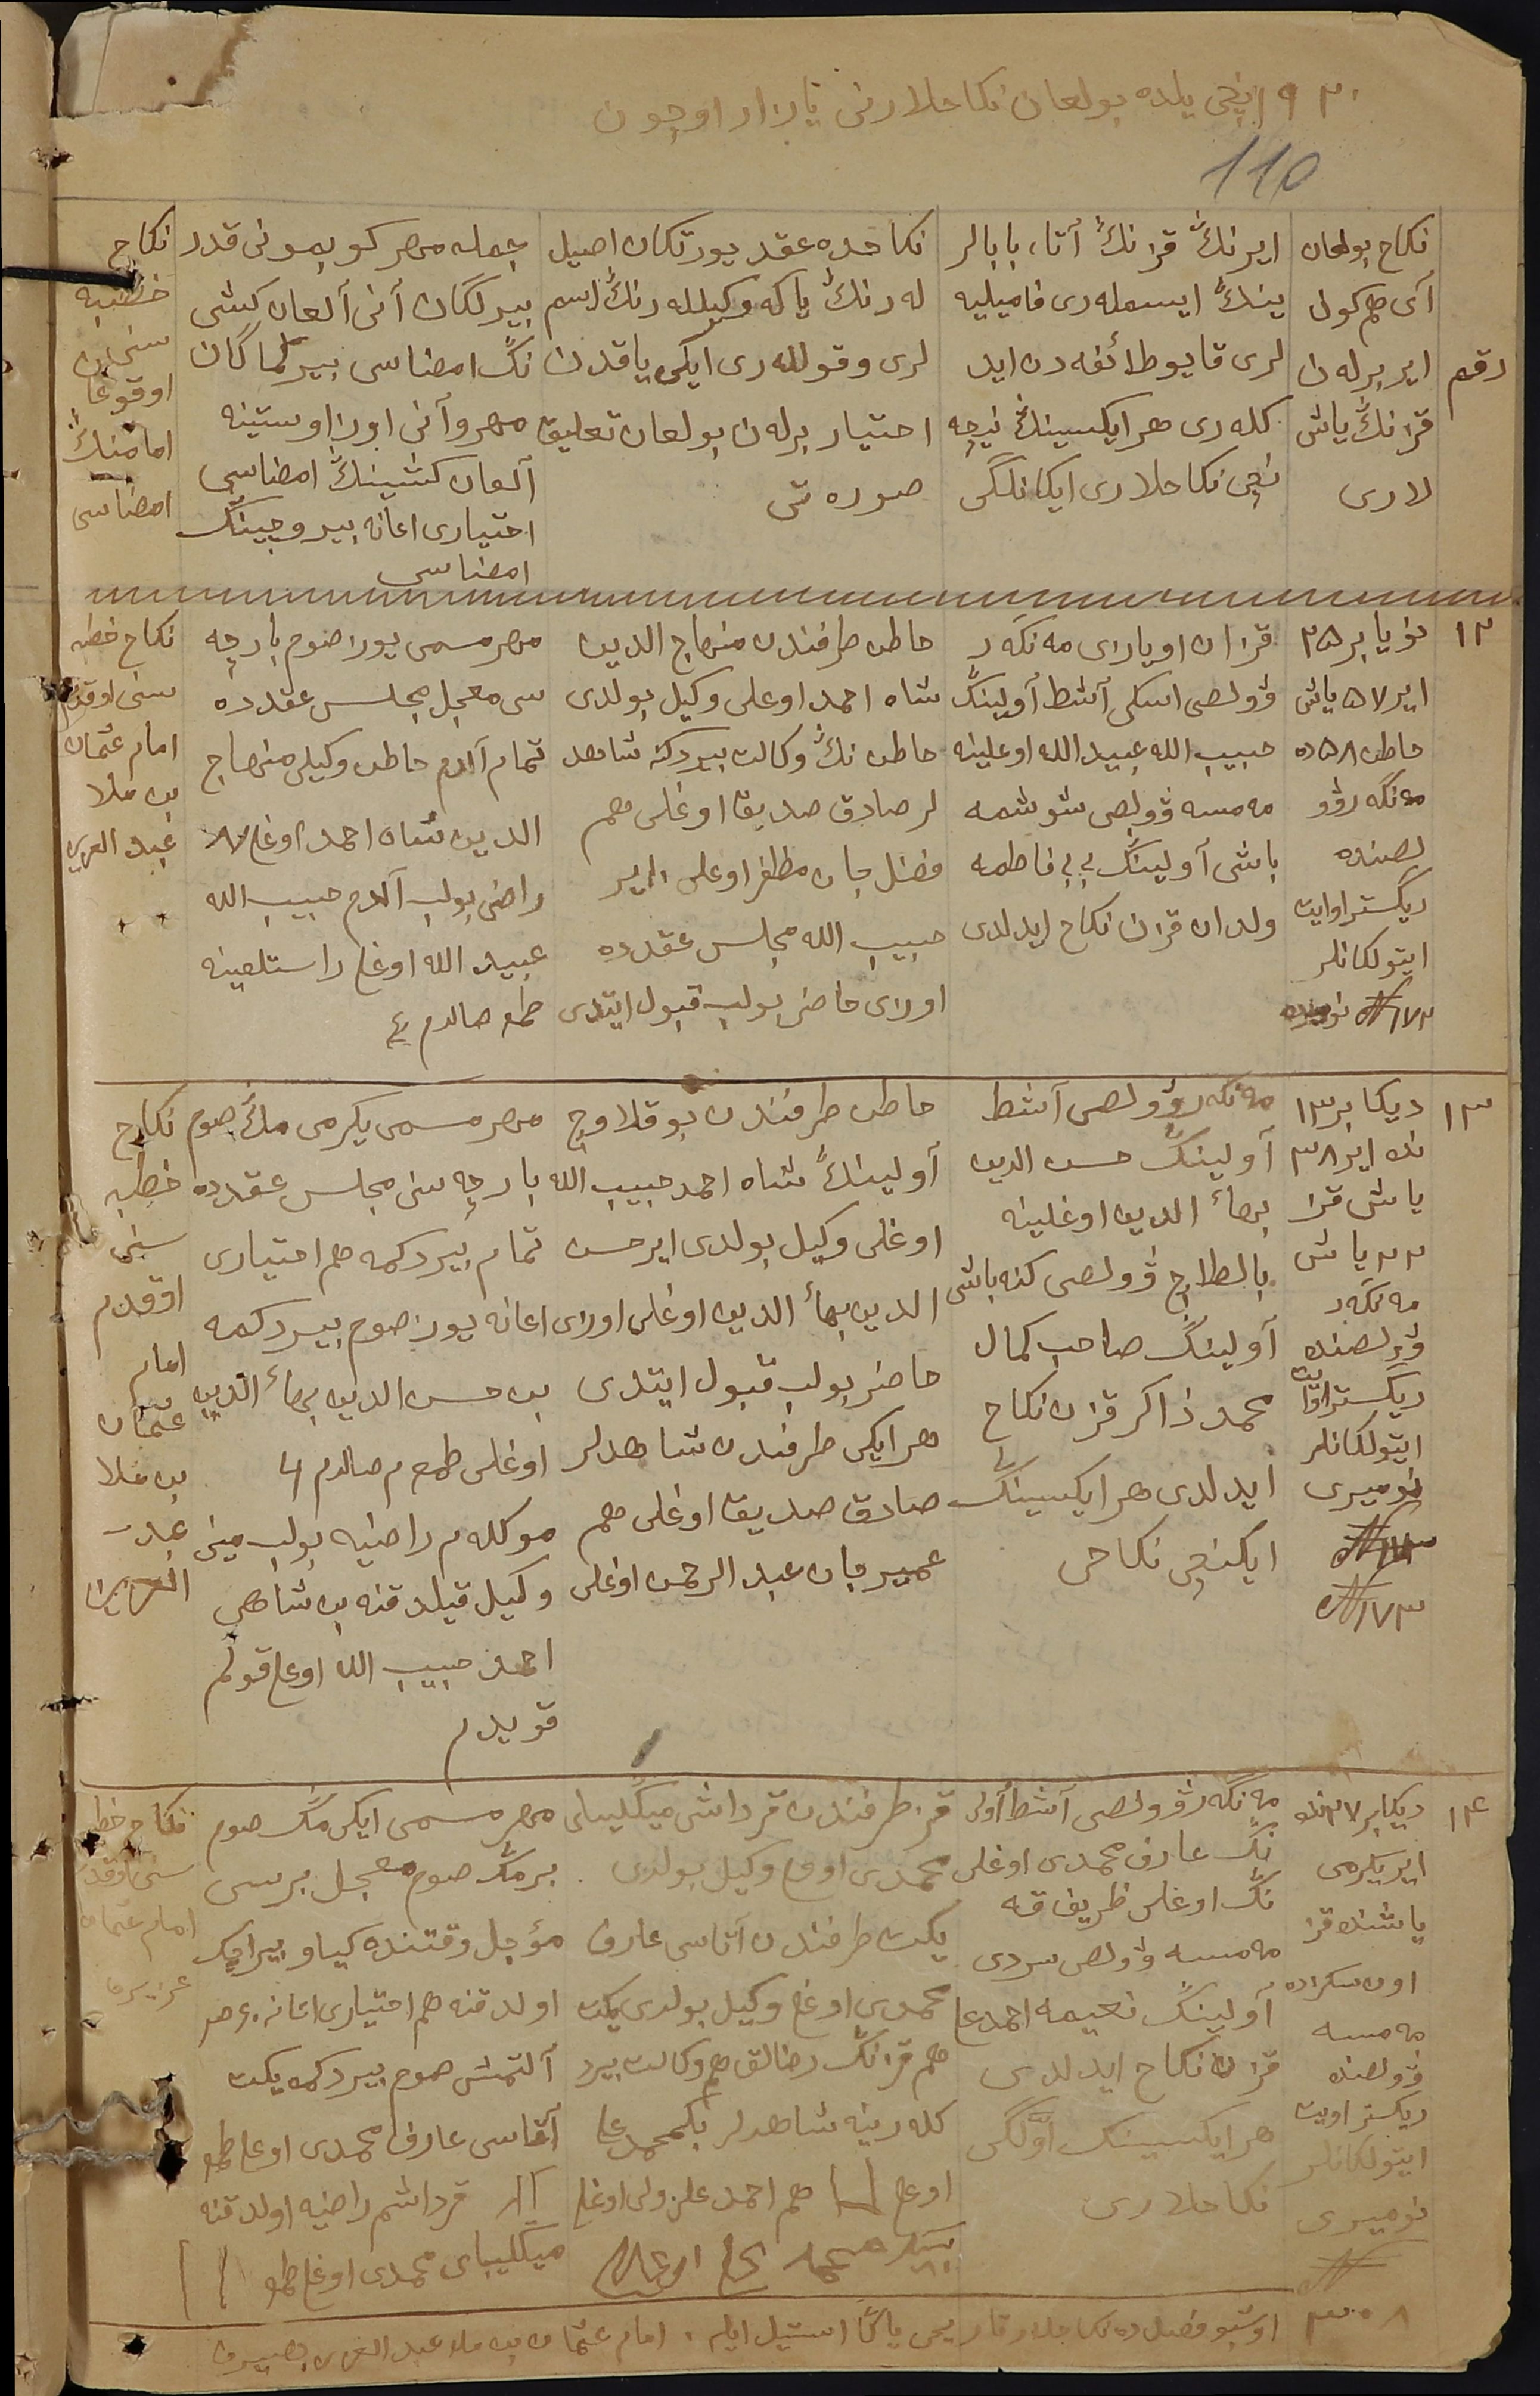 ١٩٢٠ نچی یلده بولعان نکاحلارنی یازار اوچون
110
رقم
نکاح بولعان
آی هم کون
ایر برله ن
قزنڭ یاش
لاری
ایرنڭ قزنڭ آتا، بابالر
ینڭ ایسمله ری فامیلیه
لری قایو طائفه دن اید
کله ری هر ایکسینڭ نیچه
نچی نکاحلاری ایکانلگی
نکاحده عقد یورتکان اصیل
له رنڭ یاکه وکیلله رنڭ اسم
لری وقوللەری ایکی یاقدن
احتیار برله ن بولعان تعلیق
صوره تی
جمله مهر کو بمونی قدر
بیرلگان آنی آلعان کشی
نڭ امضاسی بیرلماگان
مهر وآنی اوز اوستینه
آلعان کشینڭ امضاسی
احتیاری اعانه بیروچینڭ
امضاسی
نکاح
خطبه
سنی
اوقوعا
امامنڭ
امضاسی
١٢
نویابر ٢٥
ایر ٥٧ یاش
خاطن ٥٨ ده
مه نگه ر ڤو
لصنده
ریگستراوایت
ایتولکانلر
№ ١٧٢ نومیرده
قزان اویازی مه نگه ر
ڤولصی اسکی آشط آولینڭ
حبیب الله عبید الله اوعلینه
مه مسه ڤولصی شوشمه
باشی آولینڭ بی بی فاطمه
ولدان قزن نکاح ایدلدی
خاطن طرفندن منهاج الدین
شاه احمد اوعلی وکیل بولدی
خاطن نڭ وکالت بیردکنه شاهد
لر صادق صدیق اوغلی هم
فضل جان مظفر اوعلی ایر
حبیب الله مجلس عقدده
اوزی حاضر بولب قبول ایتدی
مهر مسمی یوز صوم بارچه
سی معجل مجلس عقدده
تمام آلدم خاطن وکیلی منهاج
الدین شاه احمد اوغلی
راضی بولب آلدم حبیب الله
عبید الله اوغلی راستلعینه
طمع صالدم
نکاح خطبه
سنی اوقدم
امام عثمان
بن ملا
عبد العزیز
١٣
دیکابر ١٣
نده ایر ٣٨
یاش قز
٢٢ یاش
مه نگه ر
ڤولصنده
ریگستراوایت
ایتولکانلر
نومیری
№ ١٧٣
مه نگه ر ڤولصی آشط
آولینڭ حسن الدین
بهاء الدین اوغلینه
بالطاچ ڤولصی کنه باشی
آولینڭ صاحب کمال
محمد ذاکر قزن نکاح
ایدلدی هر ایکسینڭ
ایکنچی نکاحی
خاطن طرفندن بوقلاوچ
آولینڭ شاه احمد حبیب الله
اوغلی وکیل بولدی ایر حسن
الدین بهاء الدین اوغلی اوزی
حاضر بولب قبول ایتدی
هر ایکی طرفندن شاهدلر
صادق صدیق اوغلی هم
عمیرجان عبد الرحمن اوغلی
مهر مسمی یکرمی مڭ صوم
بارچه سنی مجلس عقدده
تمام بیردکمه هم احتیاری
اعانه یوز صوم بیردکمه
بن حسن الدین بهاء الدین
اوغلی طمعم صالدم
موکلم راضیه بولب مینی
وکیل قیلدقنه بن شاهی
احمد حبیب الله اوعلی قولم
قویدم
نکاح
خطبه
سنی
اوقدم
امام
عثمان
بن ملا
عبد
العزیز
١٤
دیکابر ٢٧ نده
ایر یکرمی
یاشنده قز
اون سکزده
مه مسه
ڤولصنده
ریکستراویت
ایتولکانلر
نومیری
№
٣٠٠٨
مه نگه ر ڤولصی آشط آولی
نڭ عارف محمدی اوغلی
نڭ اوغلی ظریف قه
مه مسه ڤولصی سردی
آولینڭ نعیمه احمد
قزن نکاح ایدلدی
هر ایکسینڭ اولگی
نکاحلاری
قز طرفندن قرداشی میڭلیبای
محمدی اوغ وکیل بولدی
یکت طرفندن آتاسی عارف
محمدی اوغ وکیل بولدی یکت
هم قزنڭ رضالق هم وکالت بیرد
کله رینه شاهدلر
اوعلی هم احمد ولی اوغلی
مهر مسمی ایکی مڭ صوم
بر مڭ صوم معجل برسی
مؤجل وقتنده کیاو بیرمک
اولدقنه هم احتیاری اعانه
آلتمش صوم بیردکمه یکت
آتاسی عارف محمدی اوعلی
قرداشم راضیه اولدقنه
میڭلیبای محمدی اوغلی
نکاح خطبه
سنی اوقدم
امام عثمان
امام عثمان بن ملا عبد العزیز